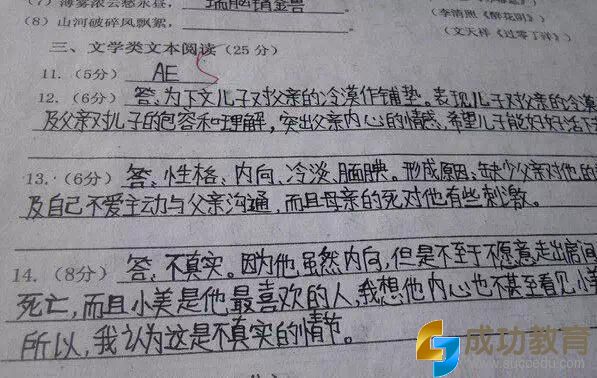 (7) 薄雾浓云愁永昼，瑞脑销金兽
(李清照《醉花阴》)
(8) 山河破碎风飘絮，
(文天祥《过零丁洋》)
三、文学类文本阅读(25分)
11.(5分) AE
12.(6分) 答:为下文儿子对父亲的冷漠作铺垫。表现儿子对父亲的冷漠
及父亲对儿子的包容和理解，突出父亲内心的情感，希望儿子能好好活下去
13.(6分) 答:性格:内向、冷淡、腼腆。形成原因:缺少父亲对他的
及自己不爱主动与父亲沟通，而且母亲的死对他有些刺激。
14.(8分) 答:不真实。因为他虽然内向,但是不至于不愿意走出房间
死亡,而且小美是他最喜欢的人,我想他内心也不甚至看见小美
所以,我认为这是不真实的情节。
成功教育
www.succedu.com